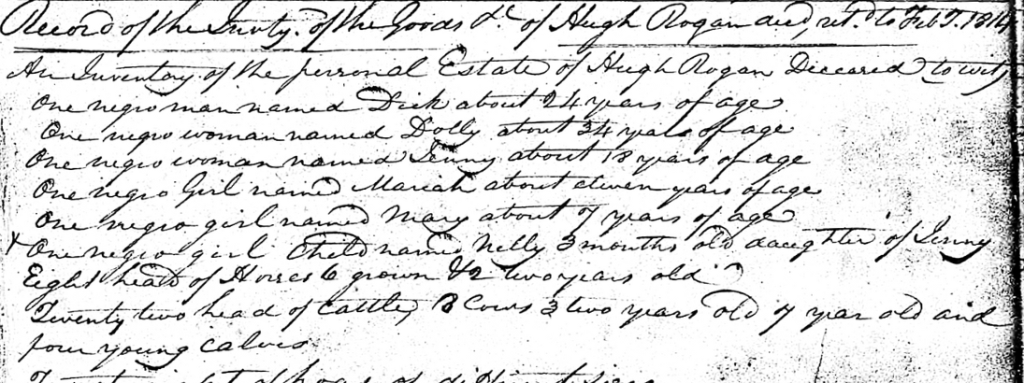 Record of the Invty. of the Goods &c of Hugh Rogan decd, ret. to Feb T. 1814
An Inventory of the personal Estate of Hugh Rogan Deceased to wit,
One negro man named Dick about 24 years of age
One negro woman named Dolly about 34 years of age
One negro woman named Jenny about 18 years of age
One negro Girl named Mariah about eleven years of age
One negro girl named Mary about 7 years of age
x One negro girl Child named Nelly 3 months old daughter of Jenny
Eight head of Horses 6 grown & 2 two years old
Twenty two head of Cattle, 8 Cows 3 two years old 7 year old and
four young Calves